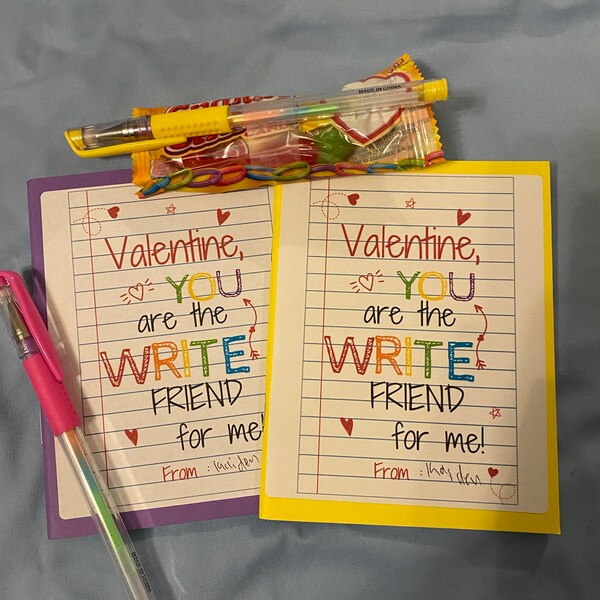 MADE IN CHINA
Valentine,
YOU
are the
WRITE
FRIEND
for me!
From :
Valentine,
YOU
are the
WRITE
FRIEND
for me!
From :